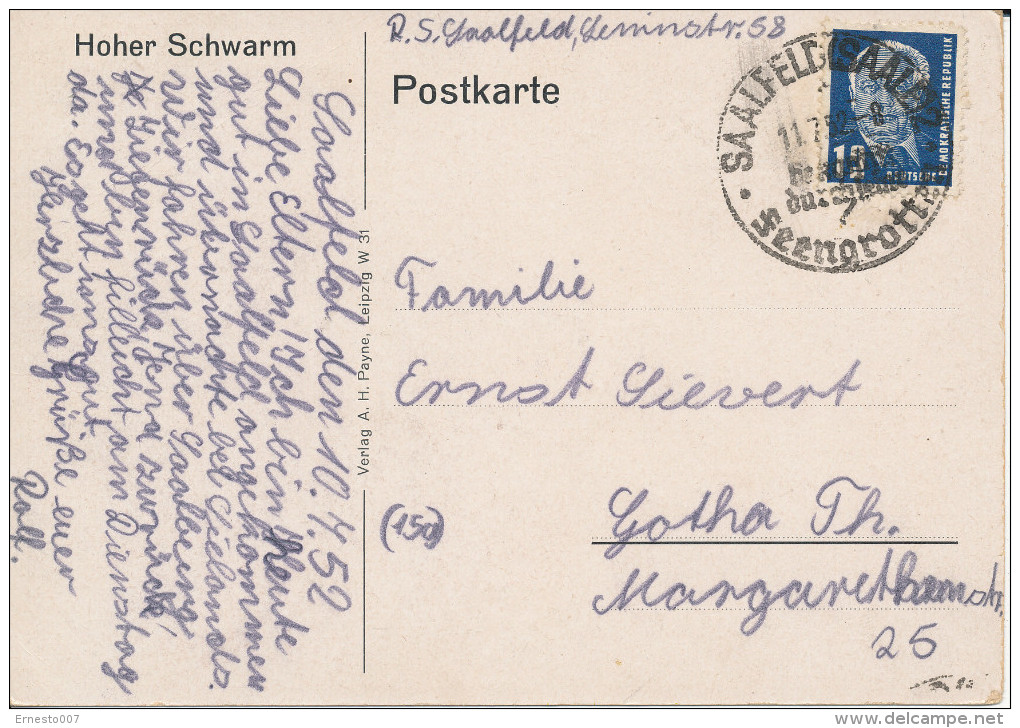 Hoher Schwarm
R. S. Saalfeld, Leninstr. 58
Postkarte
SAALFELD (SAALE)
11.7.52-8
Feengrotten
DEUTSCHE DEMOKRATISCHE REPUBLIK
Saalfeld den 10.7.52
Liebe Eltern! Ich bin Heute
gut in Saalfeld angekommen
und übernachte bei Cielands.
Wir fahren über Saalburg
Ziegenrück Jena zurück,
und bin fielleicht am Dienstag
da. Es geht uns gut.
Herzliche Grüße euer
Rolf.
Verlag A. H. Payne, Leipzig W 31
Familie
Ernst Sievert
(15a)
Gotha Th.
Margarethenstr.
25
Ernesto007
www.delcampe.net